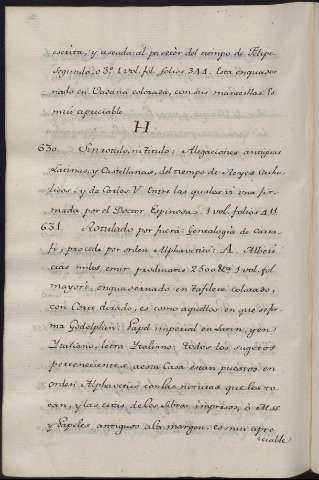 escrita, y usada al parecer del tiempo de Felipe
Segundo, o 3º. 1 vol. fol. folios 344. Esta enquader
nado en Vadana colorada, con sus manecillas. Es
mui apreciable.
H
630. Sin rotulo, ni titulo: Alegaciones antiguas
Latinas, y Castellanas, del tiempo de Reyes Catho
licos, y de Carlos V. Entre las quales ai una fir
mada por el Doctor Espinosa. 1 vol. folios 411
631. Rotulado por fuera: Genealogia de Cara
fi; procede por orden Alphavetico: A. Alberi
cius miles emit 1 vol. fol.
mayori, enquadernado en tafilete colorado,
con Corte dorado, es como aquellos en que se for
ma Godolphin. Papel imperial en Latin, y en
Ytaliano, letra Ytaliana. Todos los sugetos
pertenecientes a esta Casa estan puestos en
orden Alphavetico con las noticias que les to
can, y las citas de los Libros impresos, ò Mss.
y Papeles antiguos a la margen: es mui apre
ciable